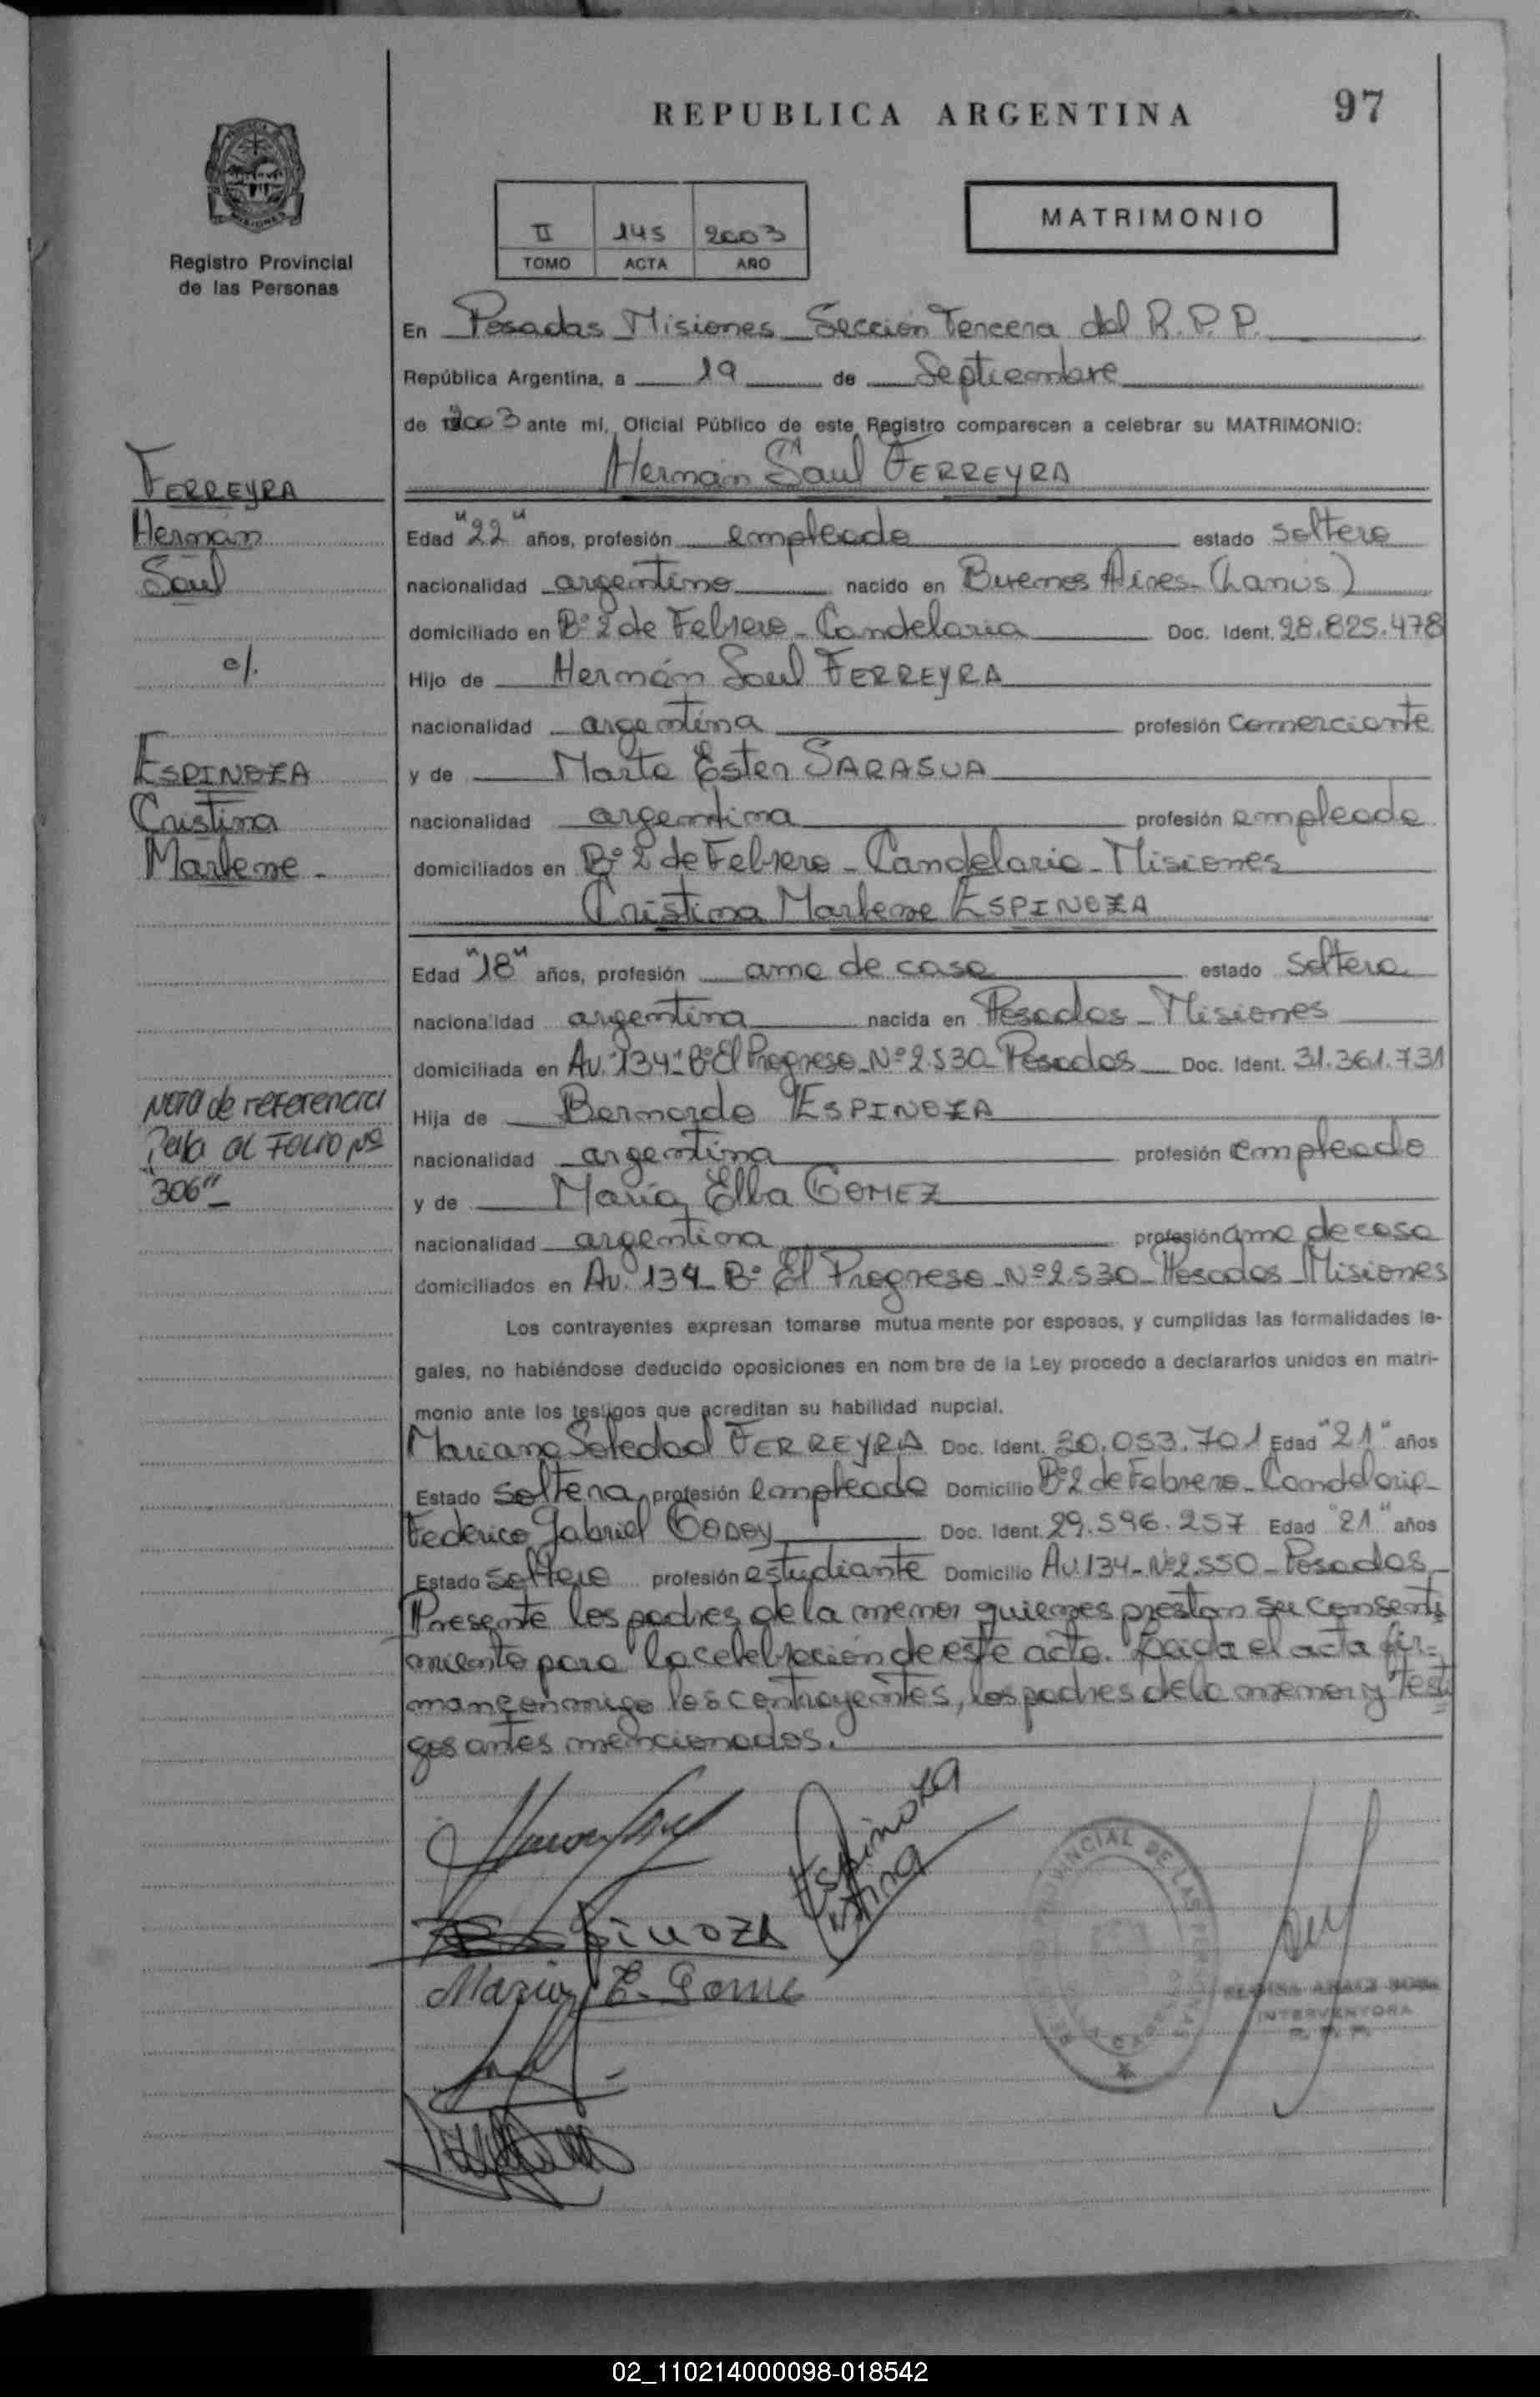 REPUBLICA ARGENTINA
97
Registro Provincial
de las Personas
II 145 2003
TOMO ACTA AÑO
MATRIMONIO
En Posadas Misiones Sección Tercera del R.P.P.
República Argentina, a 19 de Septiembre
de 2003 ante mi, Oficial Público de este Registro comparecen a celebrar su MATRIMONIO:
Hernán Saul FERREYRA
FERREYRA
Hernán
Saul
c/.
ESPINOZA
Cristina
Marlene -
Nota de referencia
Pasa al Folio Nº
"306"
Edad "22" años, profesión empleado estado soltero
nacionalidad argentino nacido en Buenos Aires-(Lanús)
domiciliado en Bº 2 de Febrero - Candelaria Doc. Ident. 28.825.478
Hijo de Hernán Saul FERREYRA
nacionalidad argentina profesión comerciante
y de Marta Ester SARASUA
nacionalidad argentina profesión empleada
domiciliados en Bº 2 de Febrero - Candelaria - Misiones
Cristina Marlene ESPINOZA
Edad "18" años, profesión ama de casa estado soltera
nacionalidad argentina nacida en Posadas - Misiones
domiciliada en Av. 134 - Bº El Progreso - Nº 2.530 - Posadas Doc. Ident. 31.361.731
Hija de Bernardo ESPINOZA
nacionalidad argentina profesión empleado
y de María Elba GOMEZ
nacionalidad argentina profesión ama de casa
domiciliados en Av. 134 - Bº El Progreso - Nº 2.530 - Posadas - Misiones
Los contrayentes expresan tomarse mutua mente por esposos, y cumplidas las formalidades le-
gales, no habiéndose deducido oposiciones en nom bre de la Ley procedo a declararlos unidos en matri-
monio ante los testigos que acreditan su habilidad nupcial.
Mariana Soledad FERREYRA Doc. Ident. 30.053.701 Edad "21" años
Estado soltera profesión empleada Domicilio Bº 2 de Febrero - Candelaria -
Federico Gabriel GODOY Doc. Ident. 29.596.257 Edad "21" años
Estado soltero profesión estudiante Domicilio Av. 134 - Nº 2.550 - Posadas -
Presente los padres de la menor quienes prestan su consenti
miento para la celebración de este acto. Leida el acta fir-
man conmigo los contrayentes, los padres de la menor y testi
gos antes mencionados.
Espinoza
Maria E. Gome
INTERVENTORA
R.P.P.
02_110214000098-018542